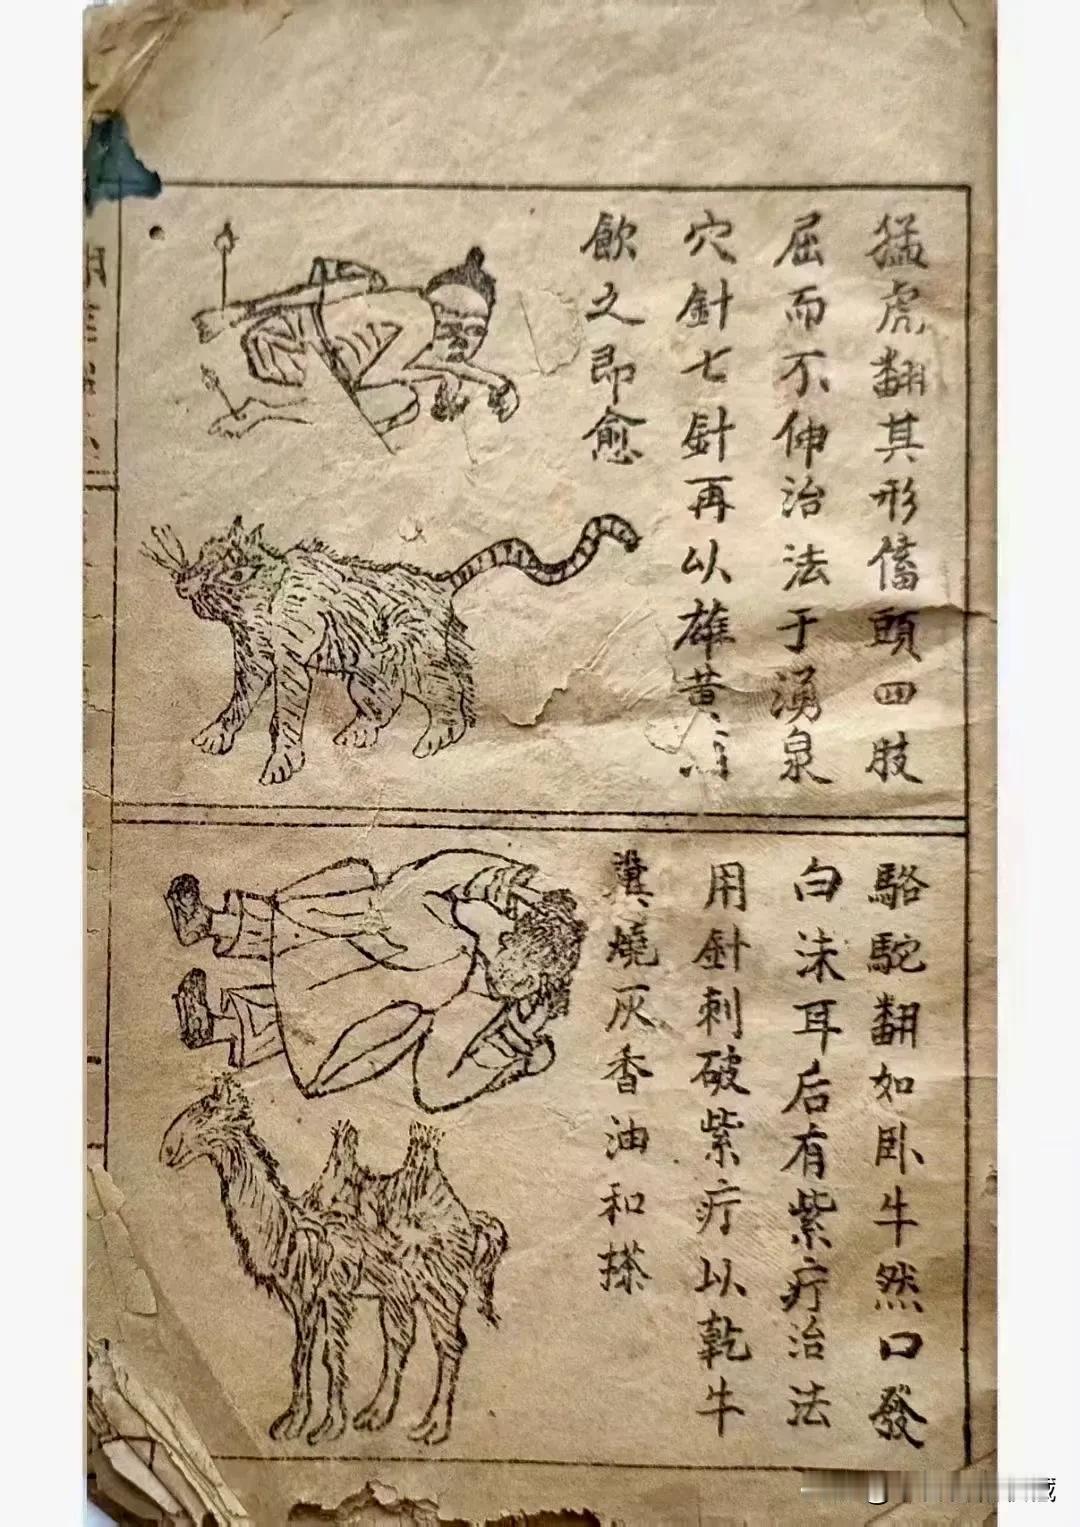 猛虎翻其形傗頭四肢
屈而不伸治法于湧泉
穴針七針再以雄黄
飲之即愈
駱駝翻如卧牛然口發
白沫耳后有紫疔治法
用針刺破紫疔以乾牛
糞燒灰香油和搽